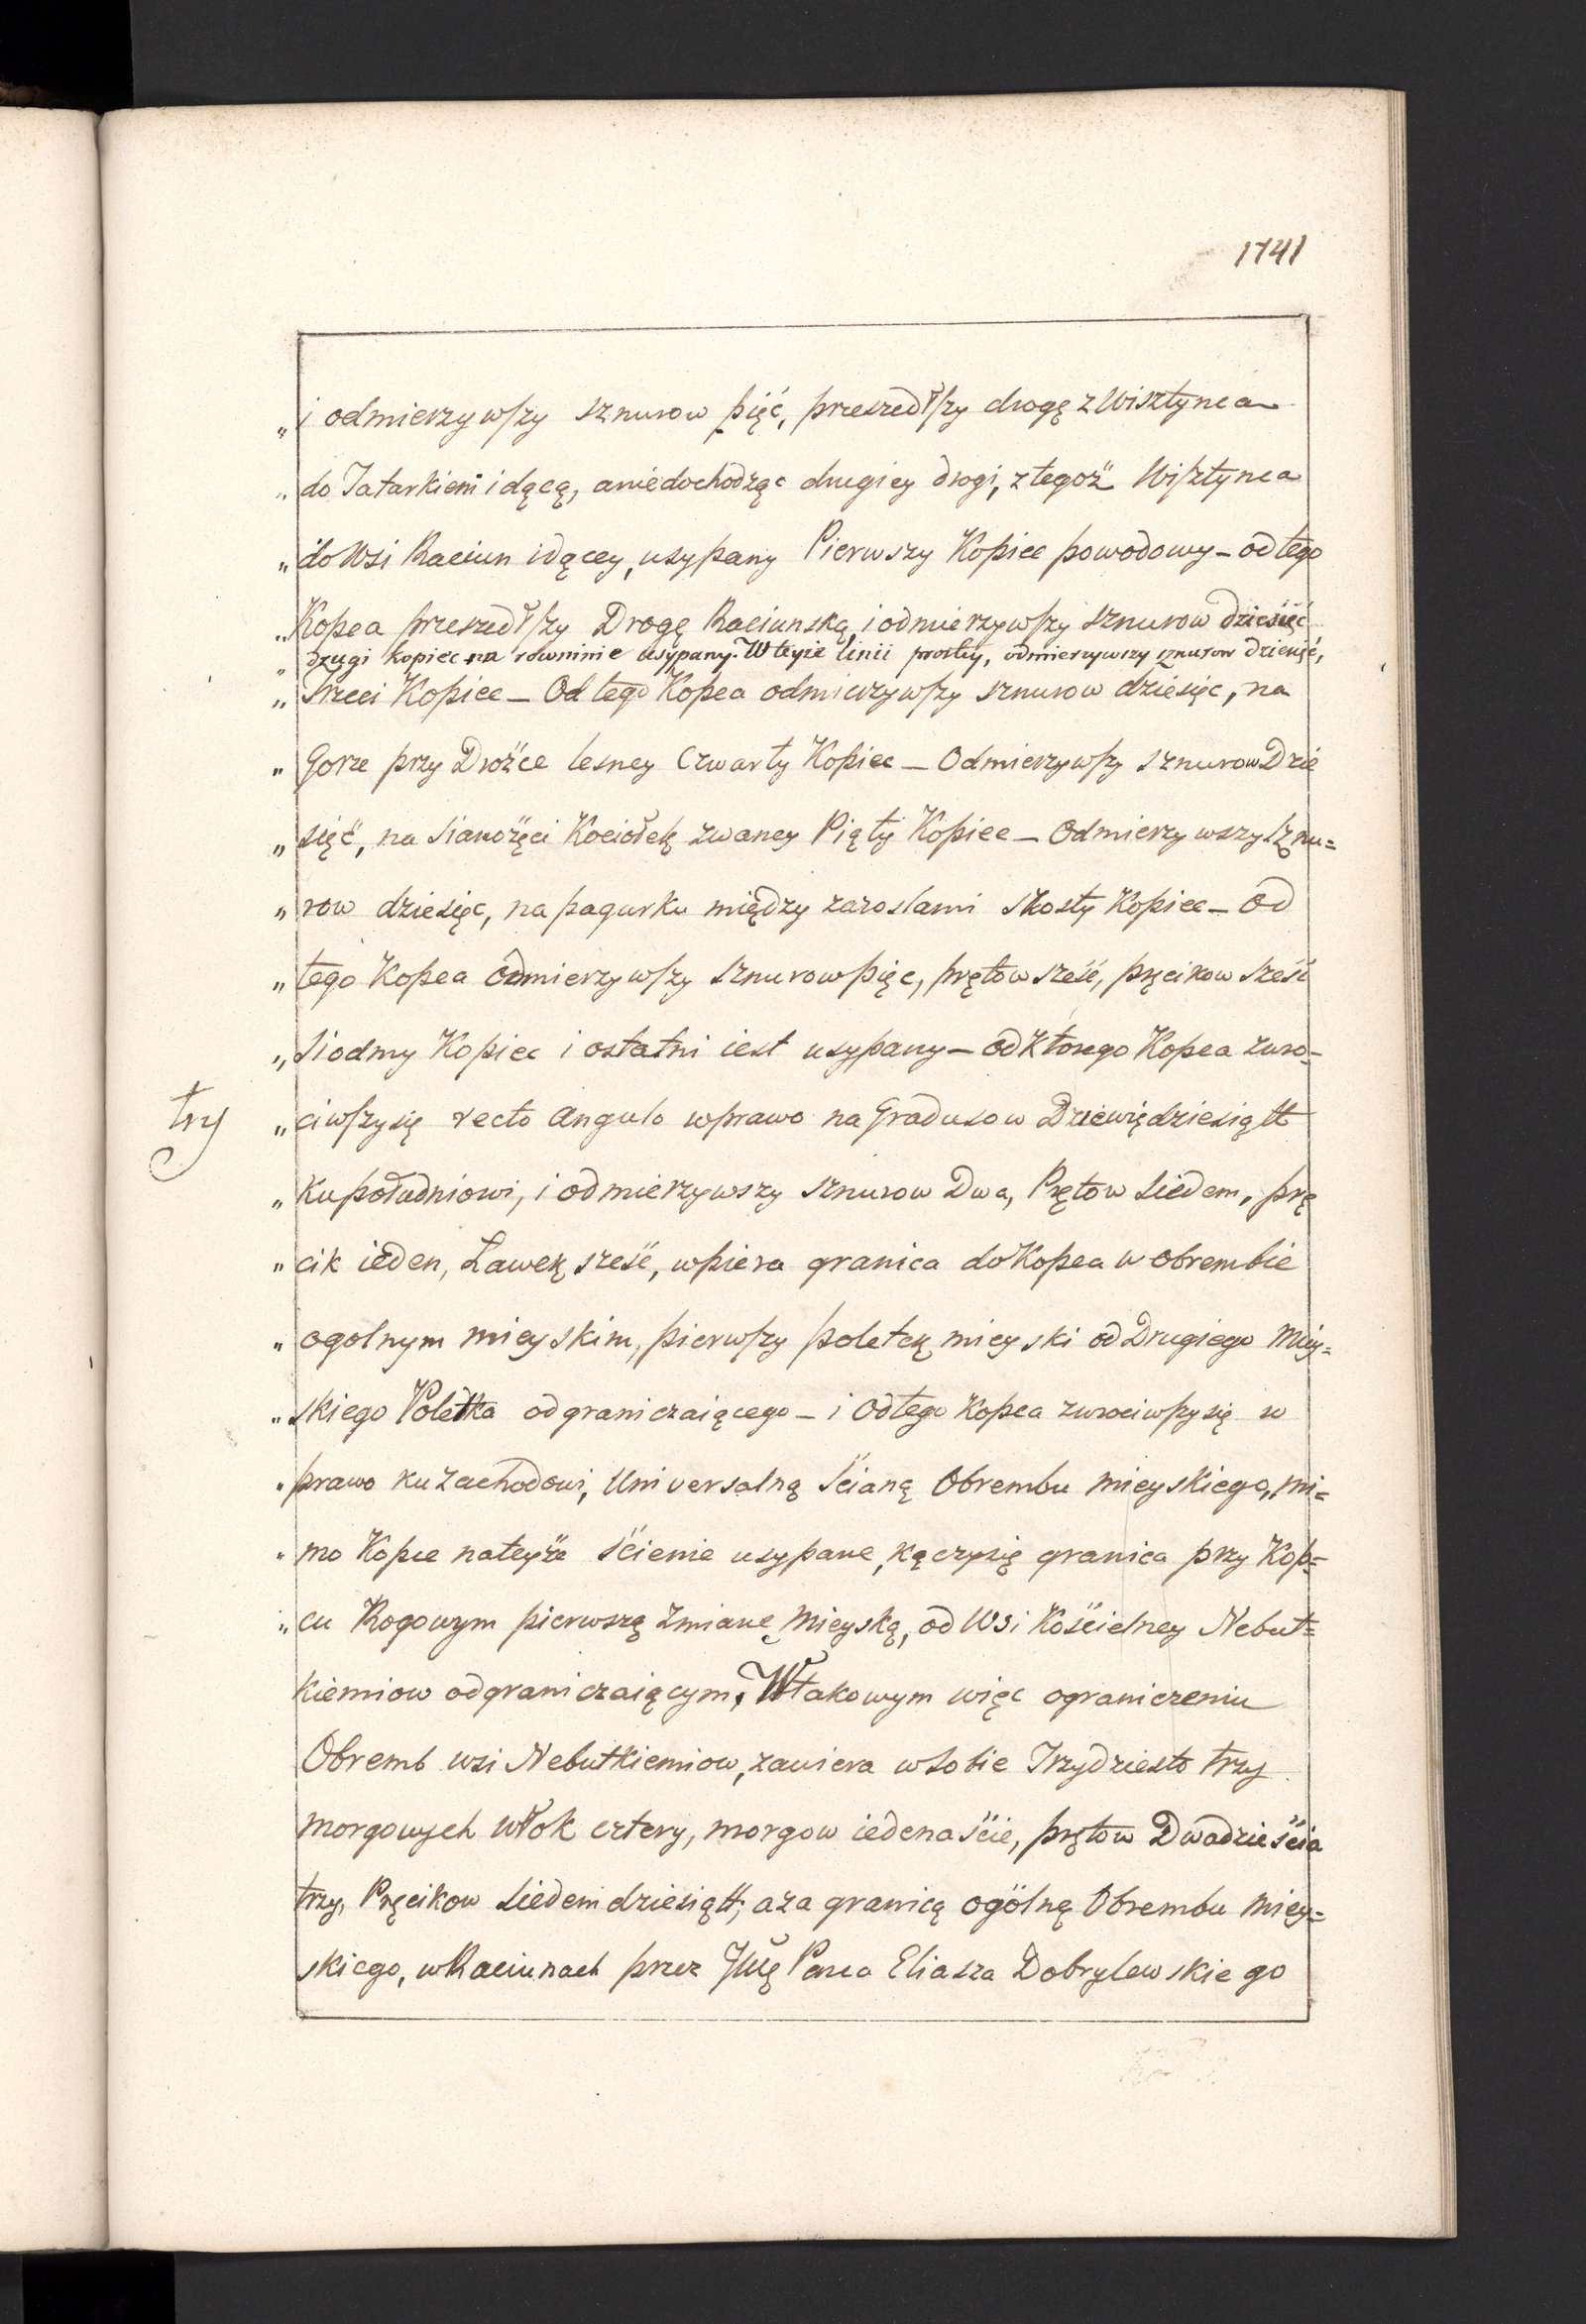 1741
„ i odmierzywszy sznurow pięć, przeszedłszy drogę z Wisztynca
„ do Jatarkiem idącą, a niedochodząc drugiey drogi, z tegoż Wisztynca
„ do Wsi Raciun idącey, usypany Pierwszy Kopiec powodowy – od tego
„ Kopca przeszedłszy Drogę Raciunską, i odmierzywszy sznurow dziesięć
„ drugi kopiec na rowninie usypany. W teyże linii prostey, odmierzywszy sznurow dziesięć,
„ Trzeci Kopiec – Od tego Kopca odmierzywszy sznurow dziesięc, na
„ Gorze przy Drożce lesney Czwarty Kopiec – Odmierzywszy sznurow Dzie
„ sięć, na Sianożęci Kociołek zwaney Piąty Kopiec – Odmierzywszy sznu=
„ row dziesięc, na pagurku między zaroslami szosty Kopiec – Od
„ tego Kopca odmierzywszy sznurow pięc, prętow sześć, pręcikow sześć
„ Siodmy Kopiec i ostatni iest usypany – od Ktorego Kopca zwro=
try
„ ciwszy się recto angulo wprawo na Gradusow Dziewiędziesiątt
„ Ku południowi, i odmierzywszy sznurow Dwa, Prętow Siedem, prę
„ cik ieden, Ławek sześć, wpiera granica do Kopca w obrembie
„ ogolnym mieyskim, pierwszy poletek mieyski od Drugiego Miey=
„ skiego Poletka odgraniczaiącego – i Od tego Kopca zwrociwszy się w
„ prawo ku Zachodowi, Universalną Ścianą Obrembu mieyskiego, mi=
„ mo Kopce na teyże ścienie usypane, kączy się granica przy Kop=
„ cu Rogowym pierwszą Zmianę Mieyską, od Wsi Kościelney Nebut=
kiemiow odgraniczaiącym. W takowym więc ograniczeniu
Obremb wsi Nebutkiemiow, zawiera w Sobie Trzydziesto trzy
morgowych włok cztery, morgow iedenaście, prętow Dwadzieścia
trzy, Pręcikow Siedemdziesiątt; a za granicą ogólną Obrembu Miey=
skiego, w Raciunach przez Pana Eliasza Dobrylewskiego